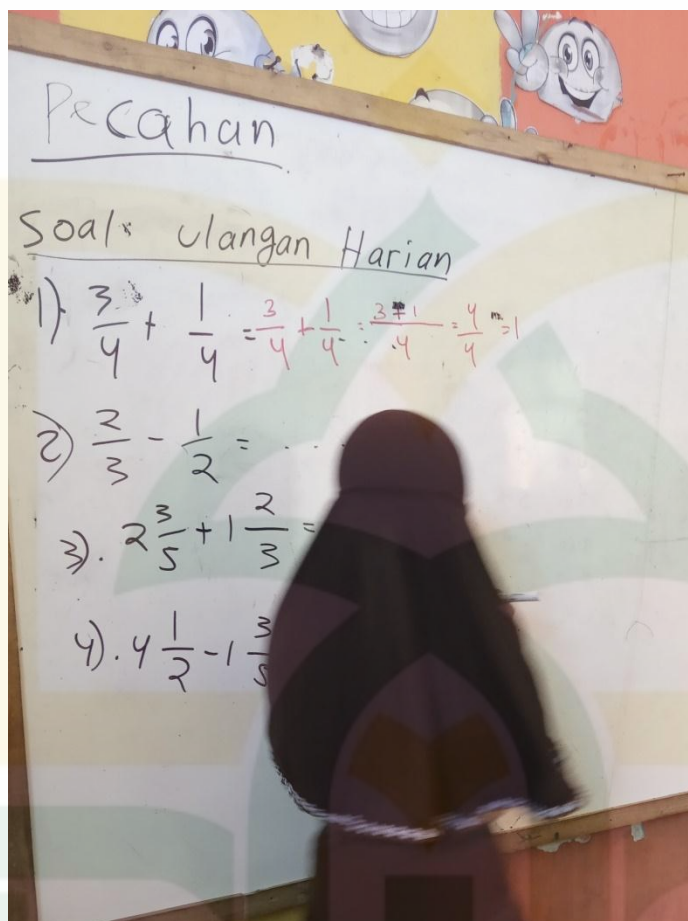 Pecahan
Soal: Ulangan Harian
1) 3/4 + 1/4 = 3/4 + 1/4 = 3+1/4 = 4/4 = 1
2) 2/3 - 1/2 = ...
3). 2 3/5 + 1 2/3 =
4). 4 1/2 - 1 3/5